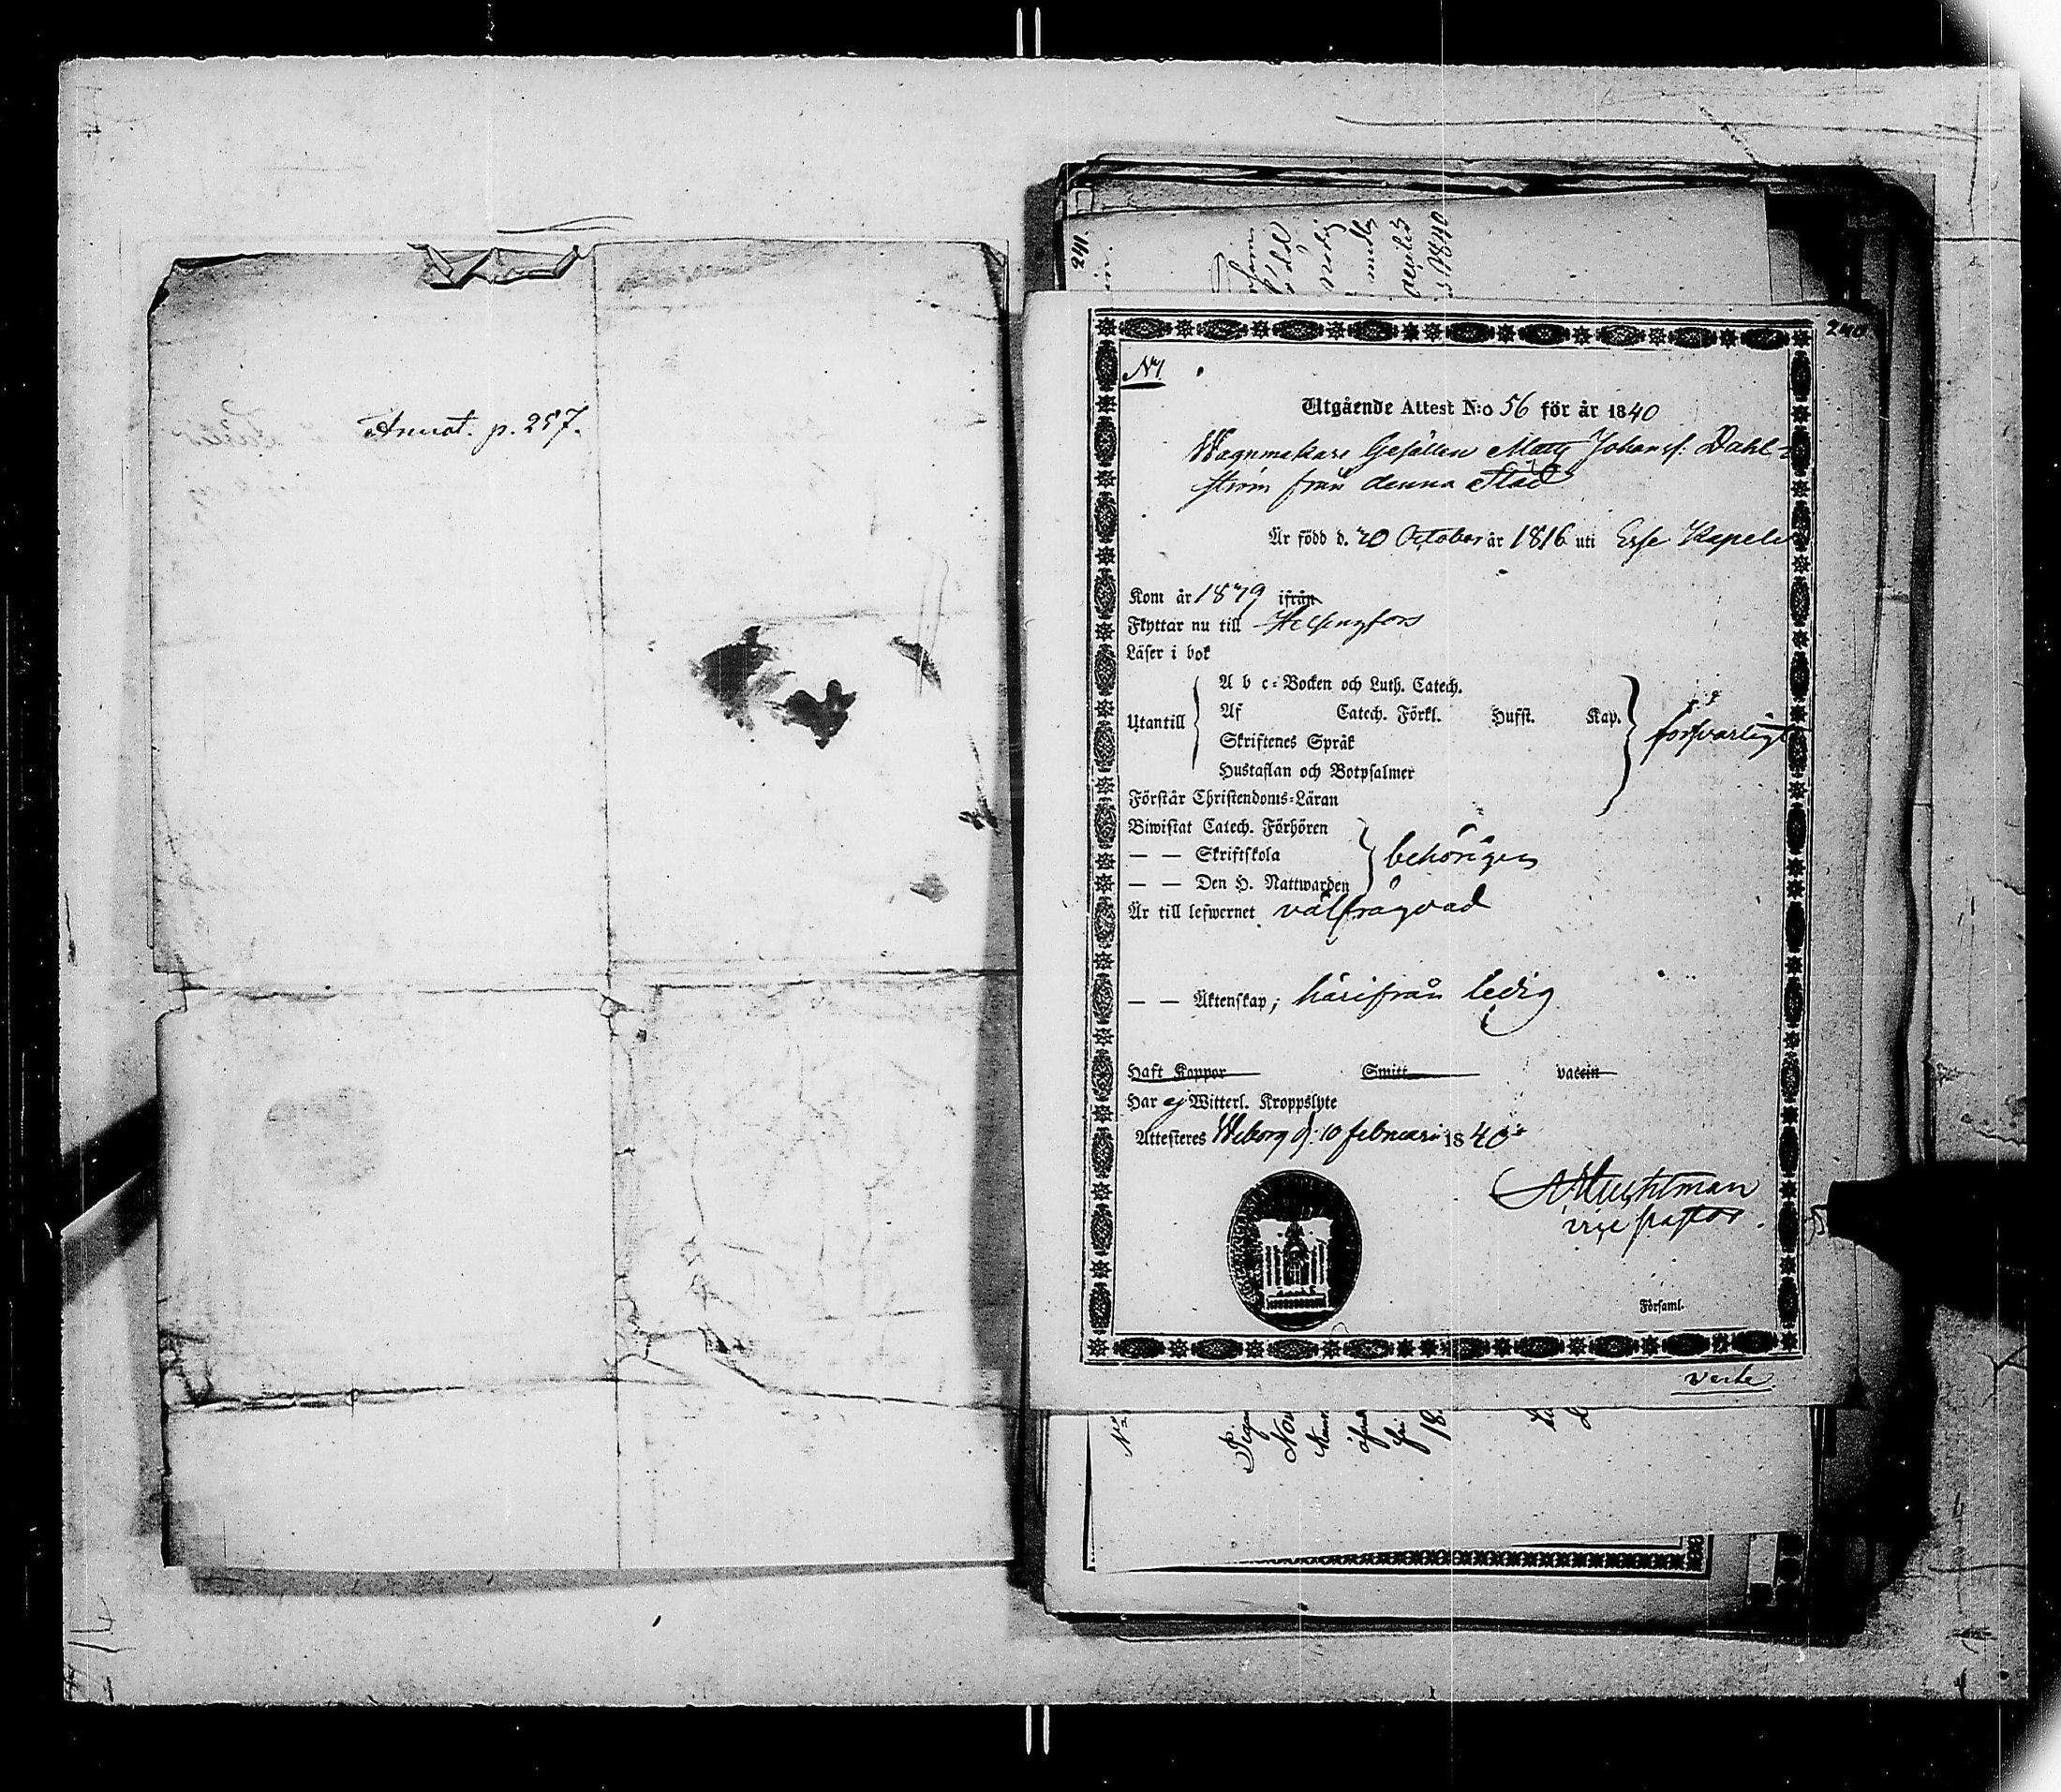 Annot. p. 257.
241.
240.
N 1
Utgående Attest N:o 56 för år 1840
Wagnmakare Gesällen Matts Johanss: Dahl-
ström från denna Stad
Är född d. 20 October år 1816 uti Esse Kapell
Kom år 1839 ifrån
Flyttar nu till Helsingfors
Läser i bok
A b c-Bocken och Luth. Catech.
Utantill Af Catech. Förkl. Hufst. Kap. försvarligt
Skriftenes Språk
Hustaflan och Botpsalmer
Förstår Christendoms-Läran
Biwistat Catech. Förhören
— — Skriftskola behörigen
— — Den H. Nattwarden
Är till lefwernet välfrägdad
— — Äktenskap, härifrån ledig
Haft Koppor Smitt vaccin
Har ej Witterl. Kroppslyte
Attesteres Wiborg d. 10 februari 1840
vice pastor.
Församl.
Verte